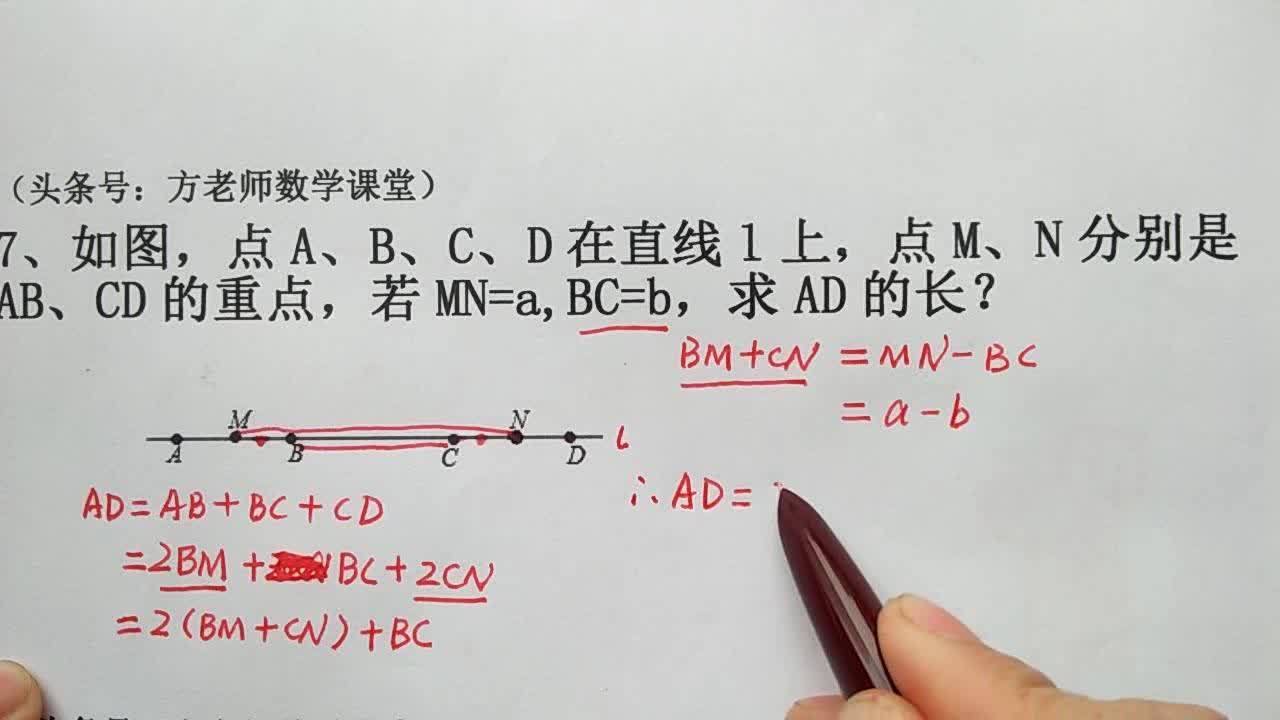 （头条号：方老师数学课堂）
7、如图，点 A、B、C、D 在直线 l 上，点 M、N 分别是
AB、CD 的重点，若 MN=a,BC=b，求 AD 的长？
BM+CN =MN-BC
=a-b
M N
A B C D l
∴AD=
AD=AB+BC+CD
=2BM+BC+2CN
=2(BM+CN)+BC